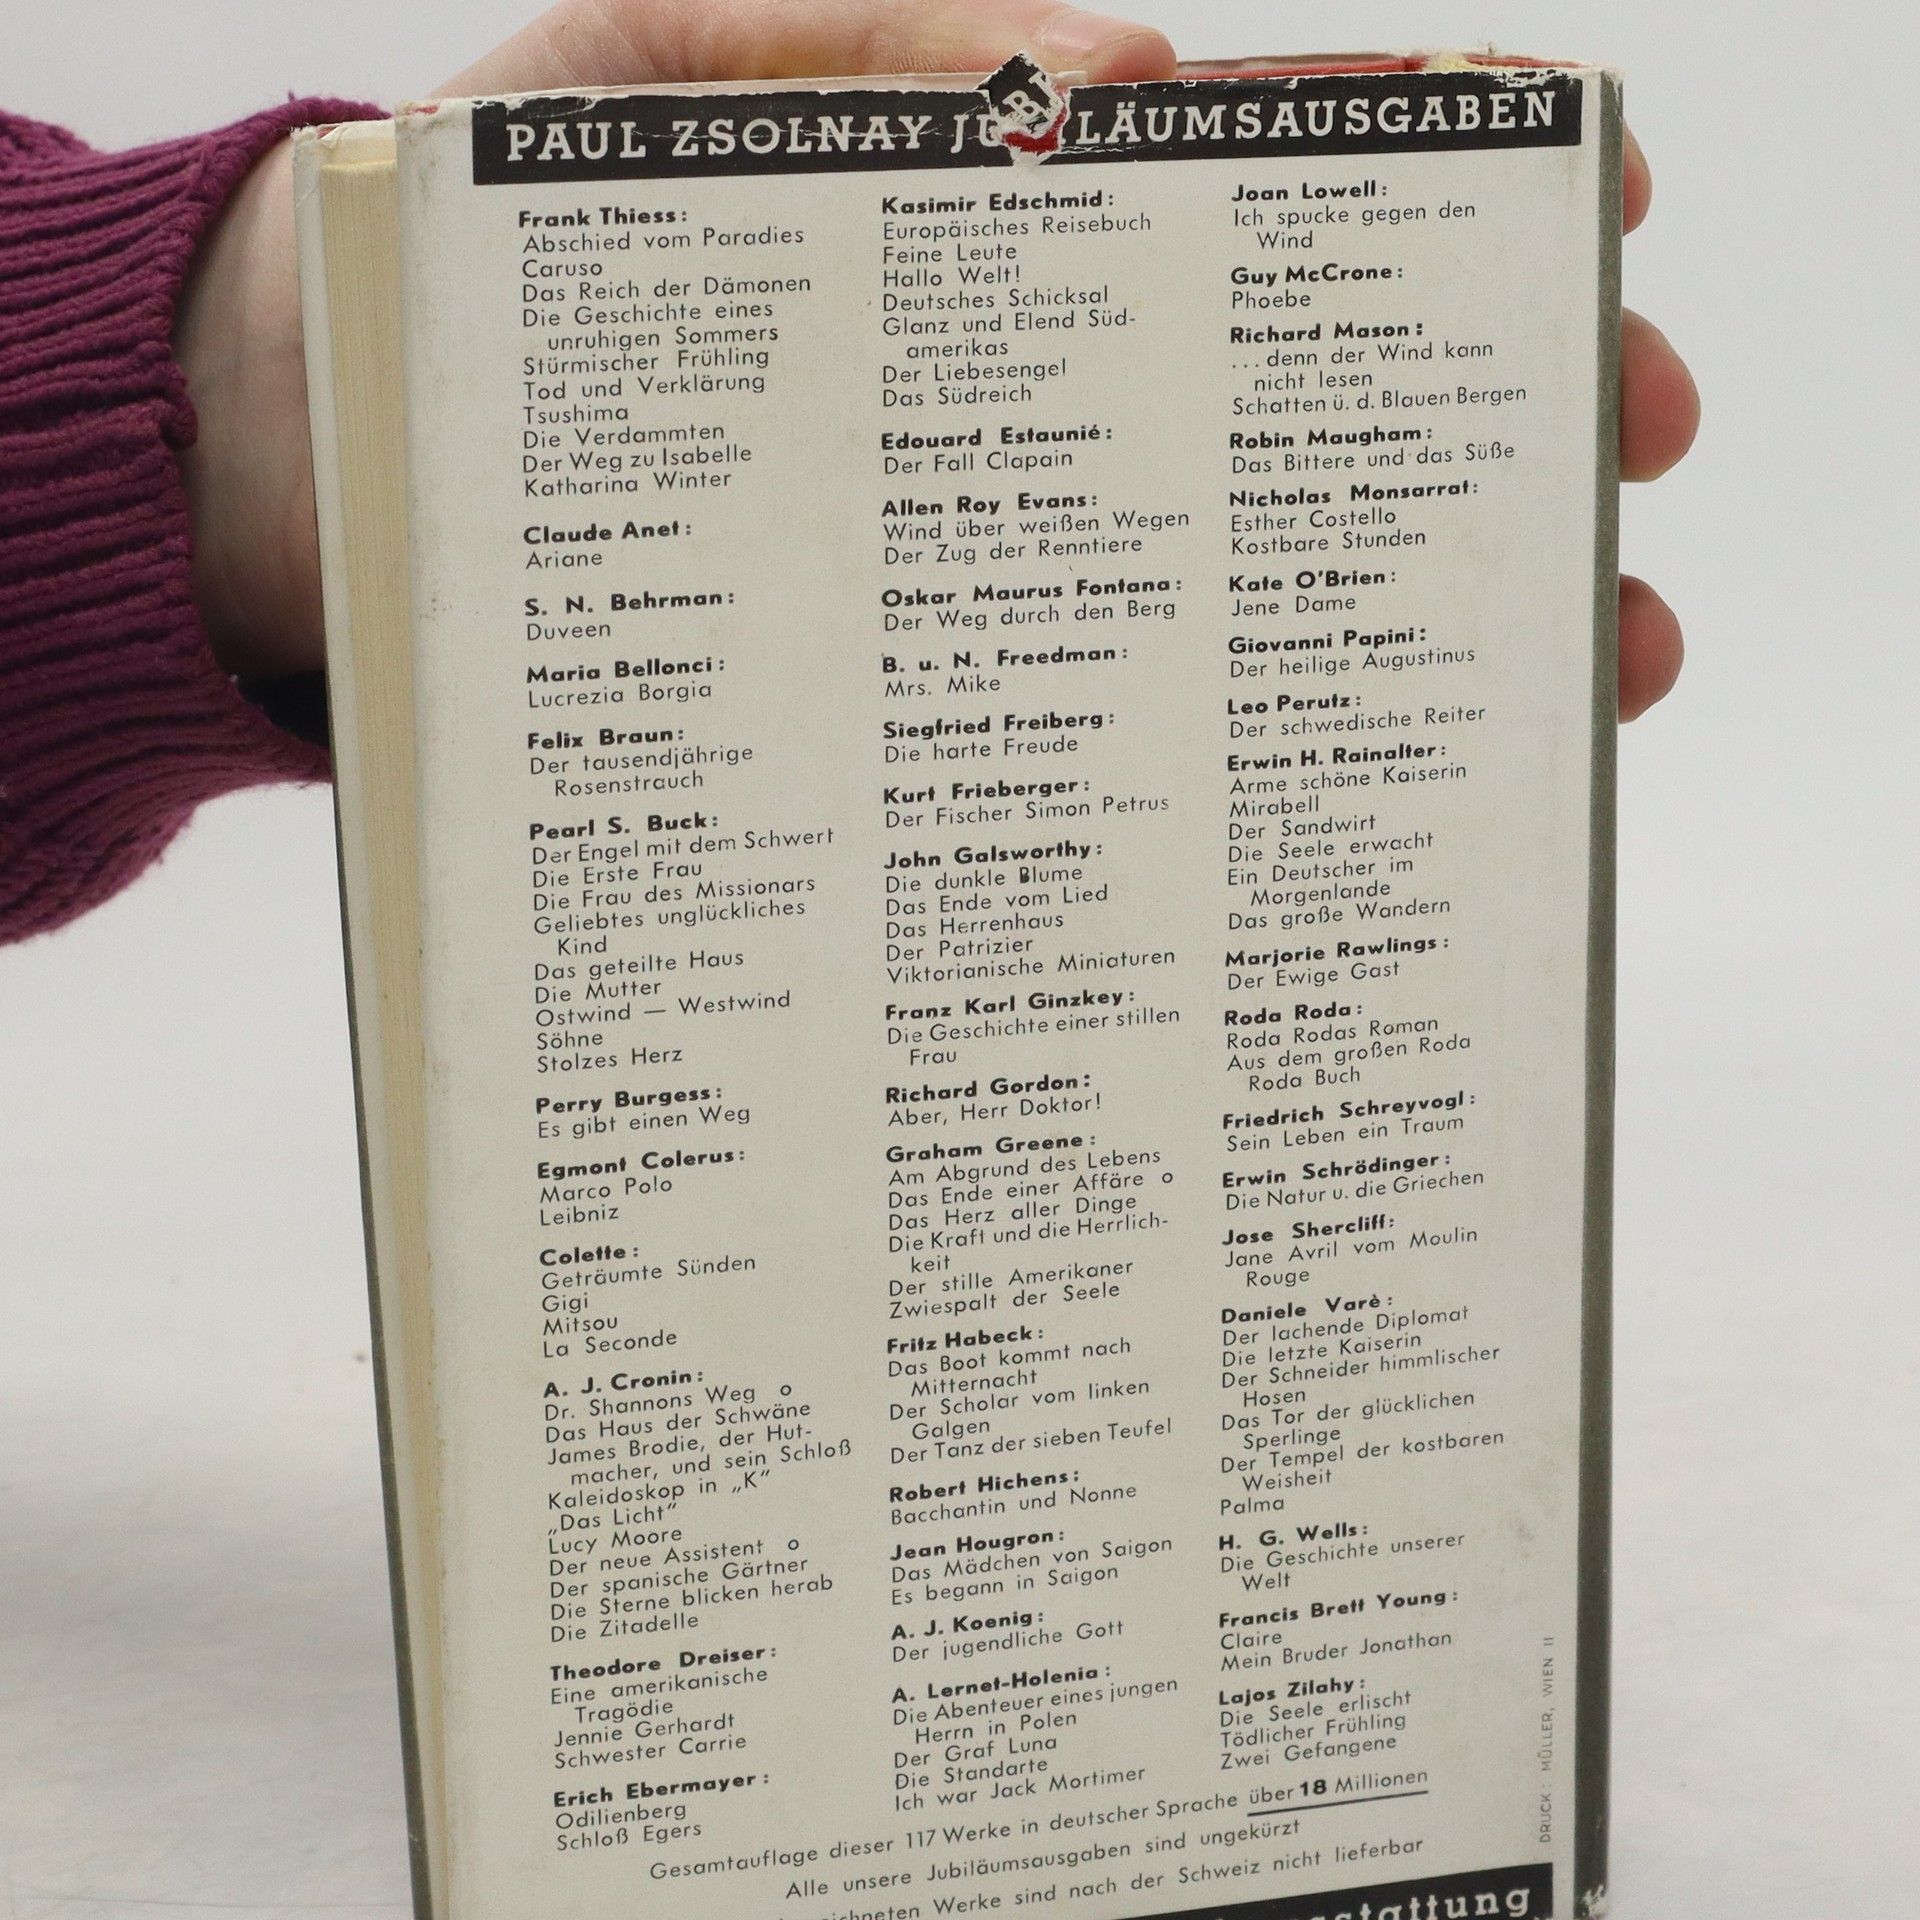 PAUL ZSOLNAY JUBILÄUMSAUSGABEN
Frank Thiess:
Abschied vom Paradies
Caruso
Das Reich der Dämonen
Die Geschichte eines
unruhigen Sommers
Stürmischer Frühling
Tod und Verklärung
Tsushima
Die Verdammten
Der Weg zu Isabelle
Katharina Winter
Claude Anet:
Ariane
S. N. Behrman:
Duveen
Maria Bellonci:
Lucrezia Borgia
Felix Braun:
Der tausendjährige
Rosenstrauch
Pearl S. Buck:
Der Engel mit dem Schwert
Die Erste Frau
Die Frau des Missionars
Geliebtes unglückliches
Kind
Das geteilte Haus
Die Mutter
Ostwind — Westwind
Söhne
Stolzes Herz
Perry Burgess:
Es gibt einen Weg
Egmont Colerus:
Marco Polo
Leibniz
Colette:
Geträumte Sünden
Gigi
Mitsou
La Seconde
A. J. Cronin:
Dr. Shannons Weg o
Das Haus der Schwäne
James Brodie, der Hut-
macher, und sein Schloß
Kaleidoskop in „K"
„Das Licht"
Lucy Moore
Der neue Assistent o
Der spanische Gärtner
Die Sterne blicken herab
Die Zitadelle
Theodore Dreiser:
Eine amerikanische
Tragödie
Jennie Gerhardt
Schwester Carrie
Erich Ebermayer:
Odilienberg
Schloß Egers
Kasimir Edschmid:
Europäisches Reisebuch
Feine Leute
Hallo Welt!
Deutsches Schicksal
Glanz und Elend Süd-
amerikas
Der Liebesengel
Das Südreich
Edouard Estaunié:
Der Fall Clapain
Allen Roy Evans:
Wind über weißen Wegen
Der Zug der Renntiere
Oskar Maurus Fontana:
Der Weg durch den Berg
B. u. N. Freedman:
Mrs. Mike
Siegfried Freiberg:
Die harte Freude
Kurt Frieberger:
Der Fischer Simon Petrus
John Galsworthy:
Die dunkle Blume
Das Ende vom Lied
Das Herrenhaus
Der Patrizier
Viktorianische Miniaturen
Franz Karl Ginzkey:
Die Geschichte einer stillen
Frau
Richard Gordon:
Aber, Herr Doktor!
Graham Greene:
Am Abgrund des Lebens
Das Ende einer Affäre o
Das Herz aller Dinge
Die Kraft und die Herrlich-
keit
Der stille Amerikaner
Zwiespalt der Seele
Fritz Habeck:
Das Boot kommt nach
Mitternacht
Der Scholar vom linken
Galgen
Der Tanz der sieben Teufel
Robert Hichens:
Bacchantin und Nonne
Jean Hougron:
Das Mädchen von Saigon
Es begann in Saigon
A. J. Koenig:
Der jugendliche Gott
A. Lernet-Holenia:
Die Abenteuer eines jungen
Herrn in Polen
Der Graf Luna
Die Standarte
Ich war Jack Mortimer
Joan Lowell:
Ich spucke gegen den
Wind
Guy McCrone:
Phoebe
Richard Mason:
...denn der Wind kann
nicht lesen
Schatten ü. d. Blauen Bergen
Robin Maugham:
Das Bittere und das Süße
Nicholas Monsarrat:
Esther Costello
Kostbare Stunden
Kate O'Brien:
Jene Dame
Giovanni Papini:
Der heilige Augustinus
Leo Perutz:
Der schwedische Reiter
Erwin H. Rainalter:
Arme schöne Kaiserin
Mirabell
Der Sandwirt
Die Seele erwacht
Ein Deutscher im
Morgenlande
Das große Wandern
Marjorie Rawlings:
Der Ewige Gast
Roda Roda:
Roda Rodas Roman
Aus dem großen Roda
Roda Buch
Friedrich Schreyvogl:
Sein Leben ein Traum
Erwin Schrödinger:
Die Natur u. die Griechen
Jose Shercliff:
Jane Avril vom Moulin
Rouge
Daniele Varè:
Der lachende Diplomat
Die letzte Kaiserin
Der Schneider himmlischer
Hosen
Das Tor der glücklichen
Sperlinge
Der Tempel der kostbaren
Weisheit
Palma
H. G. Wells:
Die Geschichte unserer
Welt
Francis Brett Young:
Claire
Mein Bruder Jonathan
Lajos Zilahy:
Die Seele erlischt
Tödlicher Frühling
Zwei Gefangene
Gesamtauflage dieser 117 Werke in deutscher Sprache über 18 Millionen
Alle unsere Jubiläumsausgaben sind ungekürzt
Werke sind nach der Schweiz nicht lieferbar
DRUCK: MÜLLER, WIEN II